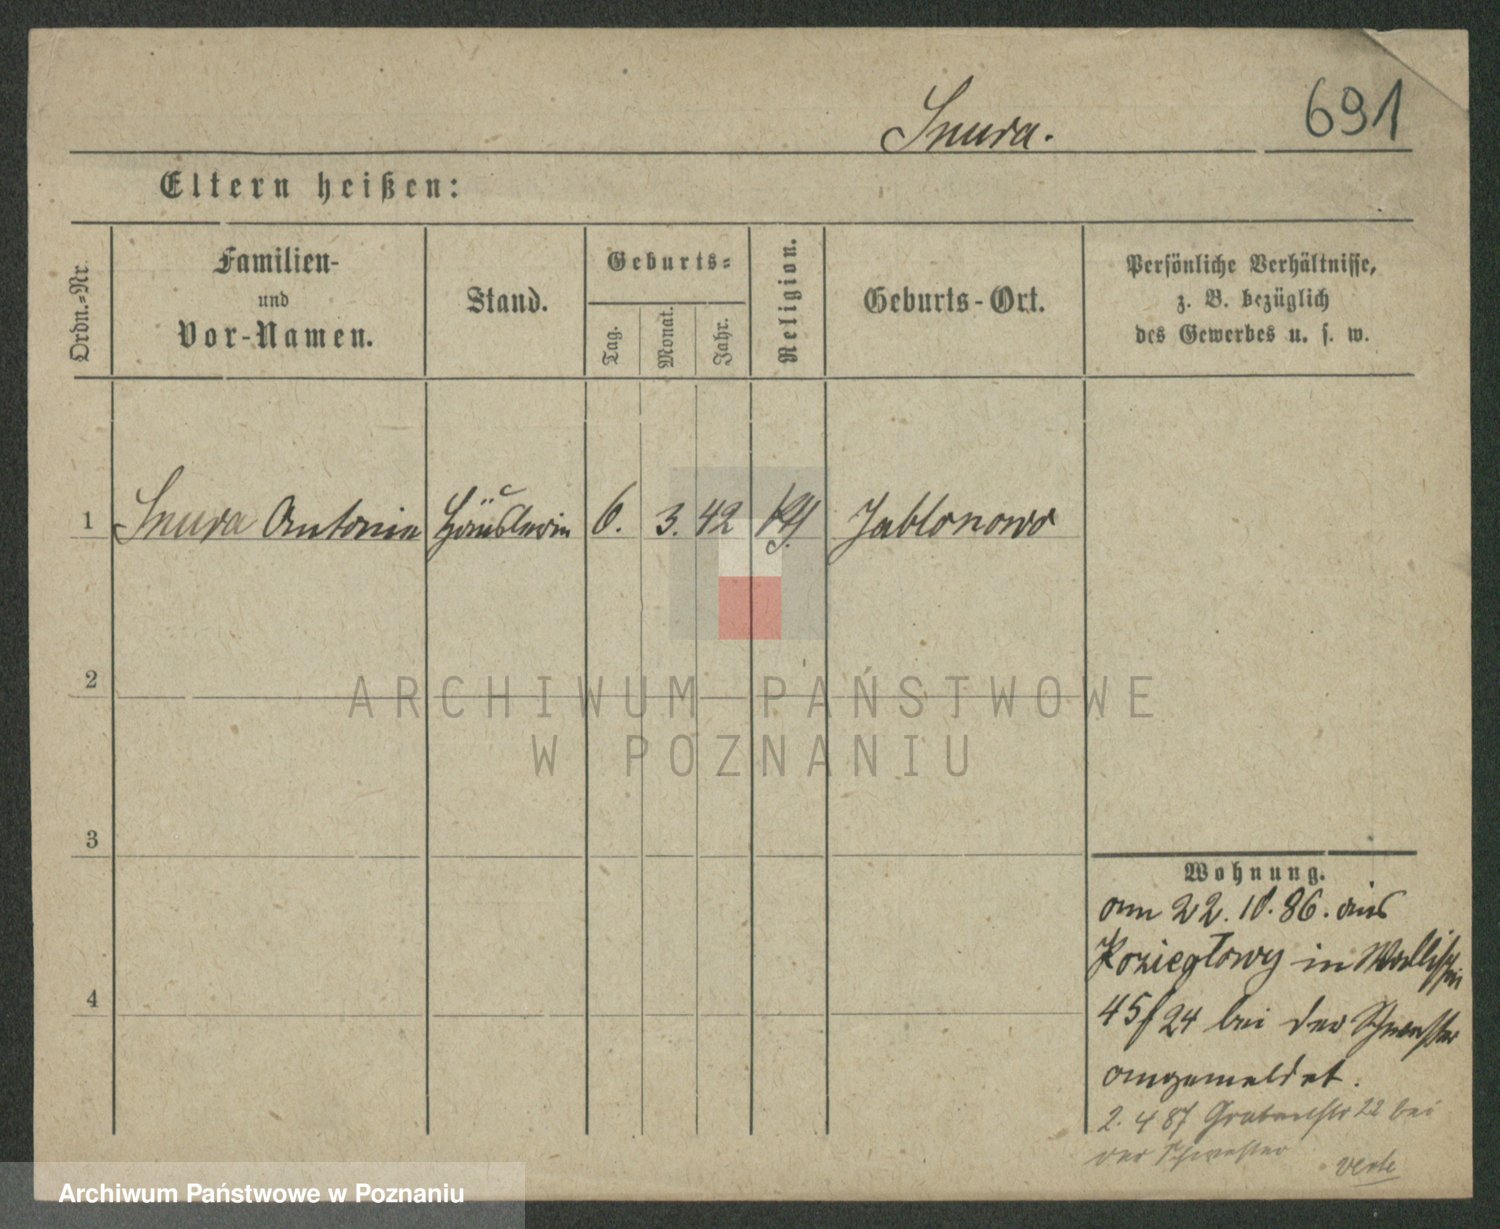 Snura.
691
Eltern heißen:
Ordn.-Nr.
Familien-
und
Vor-Namen.
Stand.
Geburts-
Tag.
Monat.
Jahr.
Religion.
Geburts-Ort.
Persönliche Verhältnisse,
z. B. bezüglich
des Gewerbes u. s. w.
1 Snura Antonie Häuslerin 6. 3. 42 Jablonowo
2
ARCHIWUM PAŃSTWOWE
W POZNANIU
3
4
Wohnung.
am 22. 10. 86. aus
Koziegłowy in Wallischei
45/24 bei der Schwester
angemeldet.
2. 4 87 Grabenstr 22 bei
der Schwester
verte
Archiwum Państwowe w Poznaniu